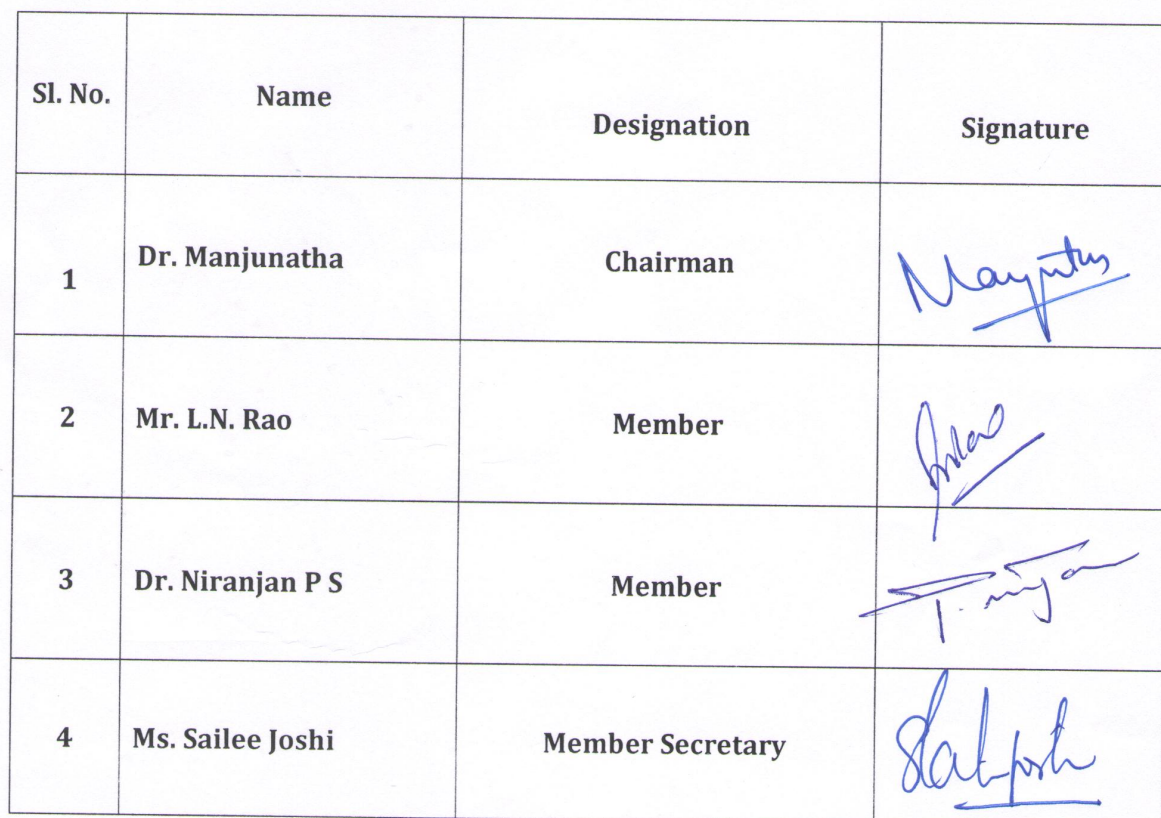 Sl. No. Name Designation Signature
1 Dr. Manjunatha Chairman
2 Mr. L.N. Rao Member
3 Dr. Niranjan P S Member
4 Ms. Sailee Joshi Member Secretary